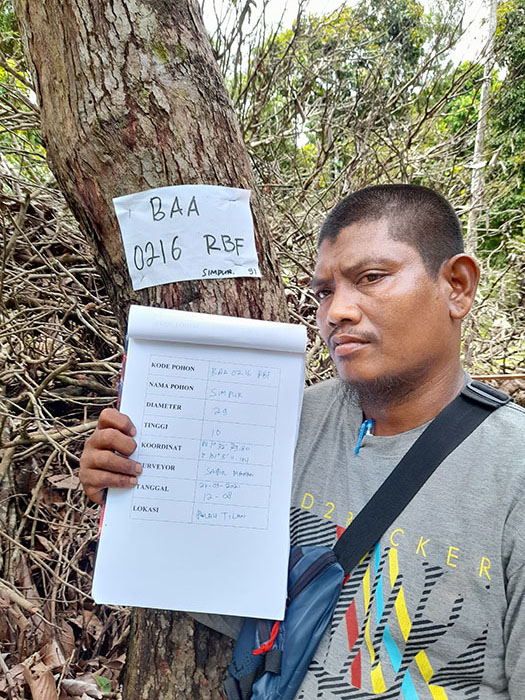 BAA
0216 RBF
SIMPUR. 91
KODE POHON BAA 0216 RBF
NAMA POHON SIMPUR
DIAMETER 29
TINGGI 10
KOORDINAT
SURVEYOR
TANGGAL
12-08
LOKASI PULAU TILAN